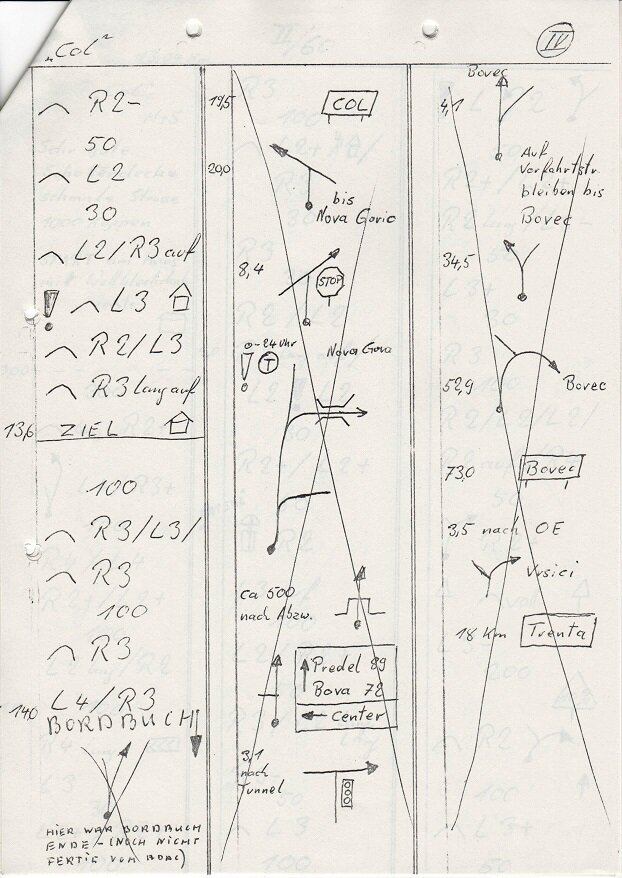 „Col“
IV
R2-
50
L2
30
L2/R3 auf
! L3
R2/L3
R3 lang auf
13,6 ZIEL
100
R3/L3/
R3
100
R3
140 L4/R3
BORDBUCH
HIER WAR BORDBUCH
ENDE - (NOCH NICHT
FERTIG VOM BDAC)
19,5 COL
20,0
bis
Nova Goric
8,4
STOP
0-24 Uhr
T
Nova Gora
ca 500
nach Abzw.
Predel 89
Bova 72
Center
3,1
nach
Tunnel
Bovec
4,1
Auf
Vorfahrtstr.
bleiben bis
Bovec
34,5
52,9
Bovec
73,0 Bovec
3,5 nach OE
Vrsici
18 Km Trenta